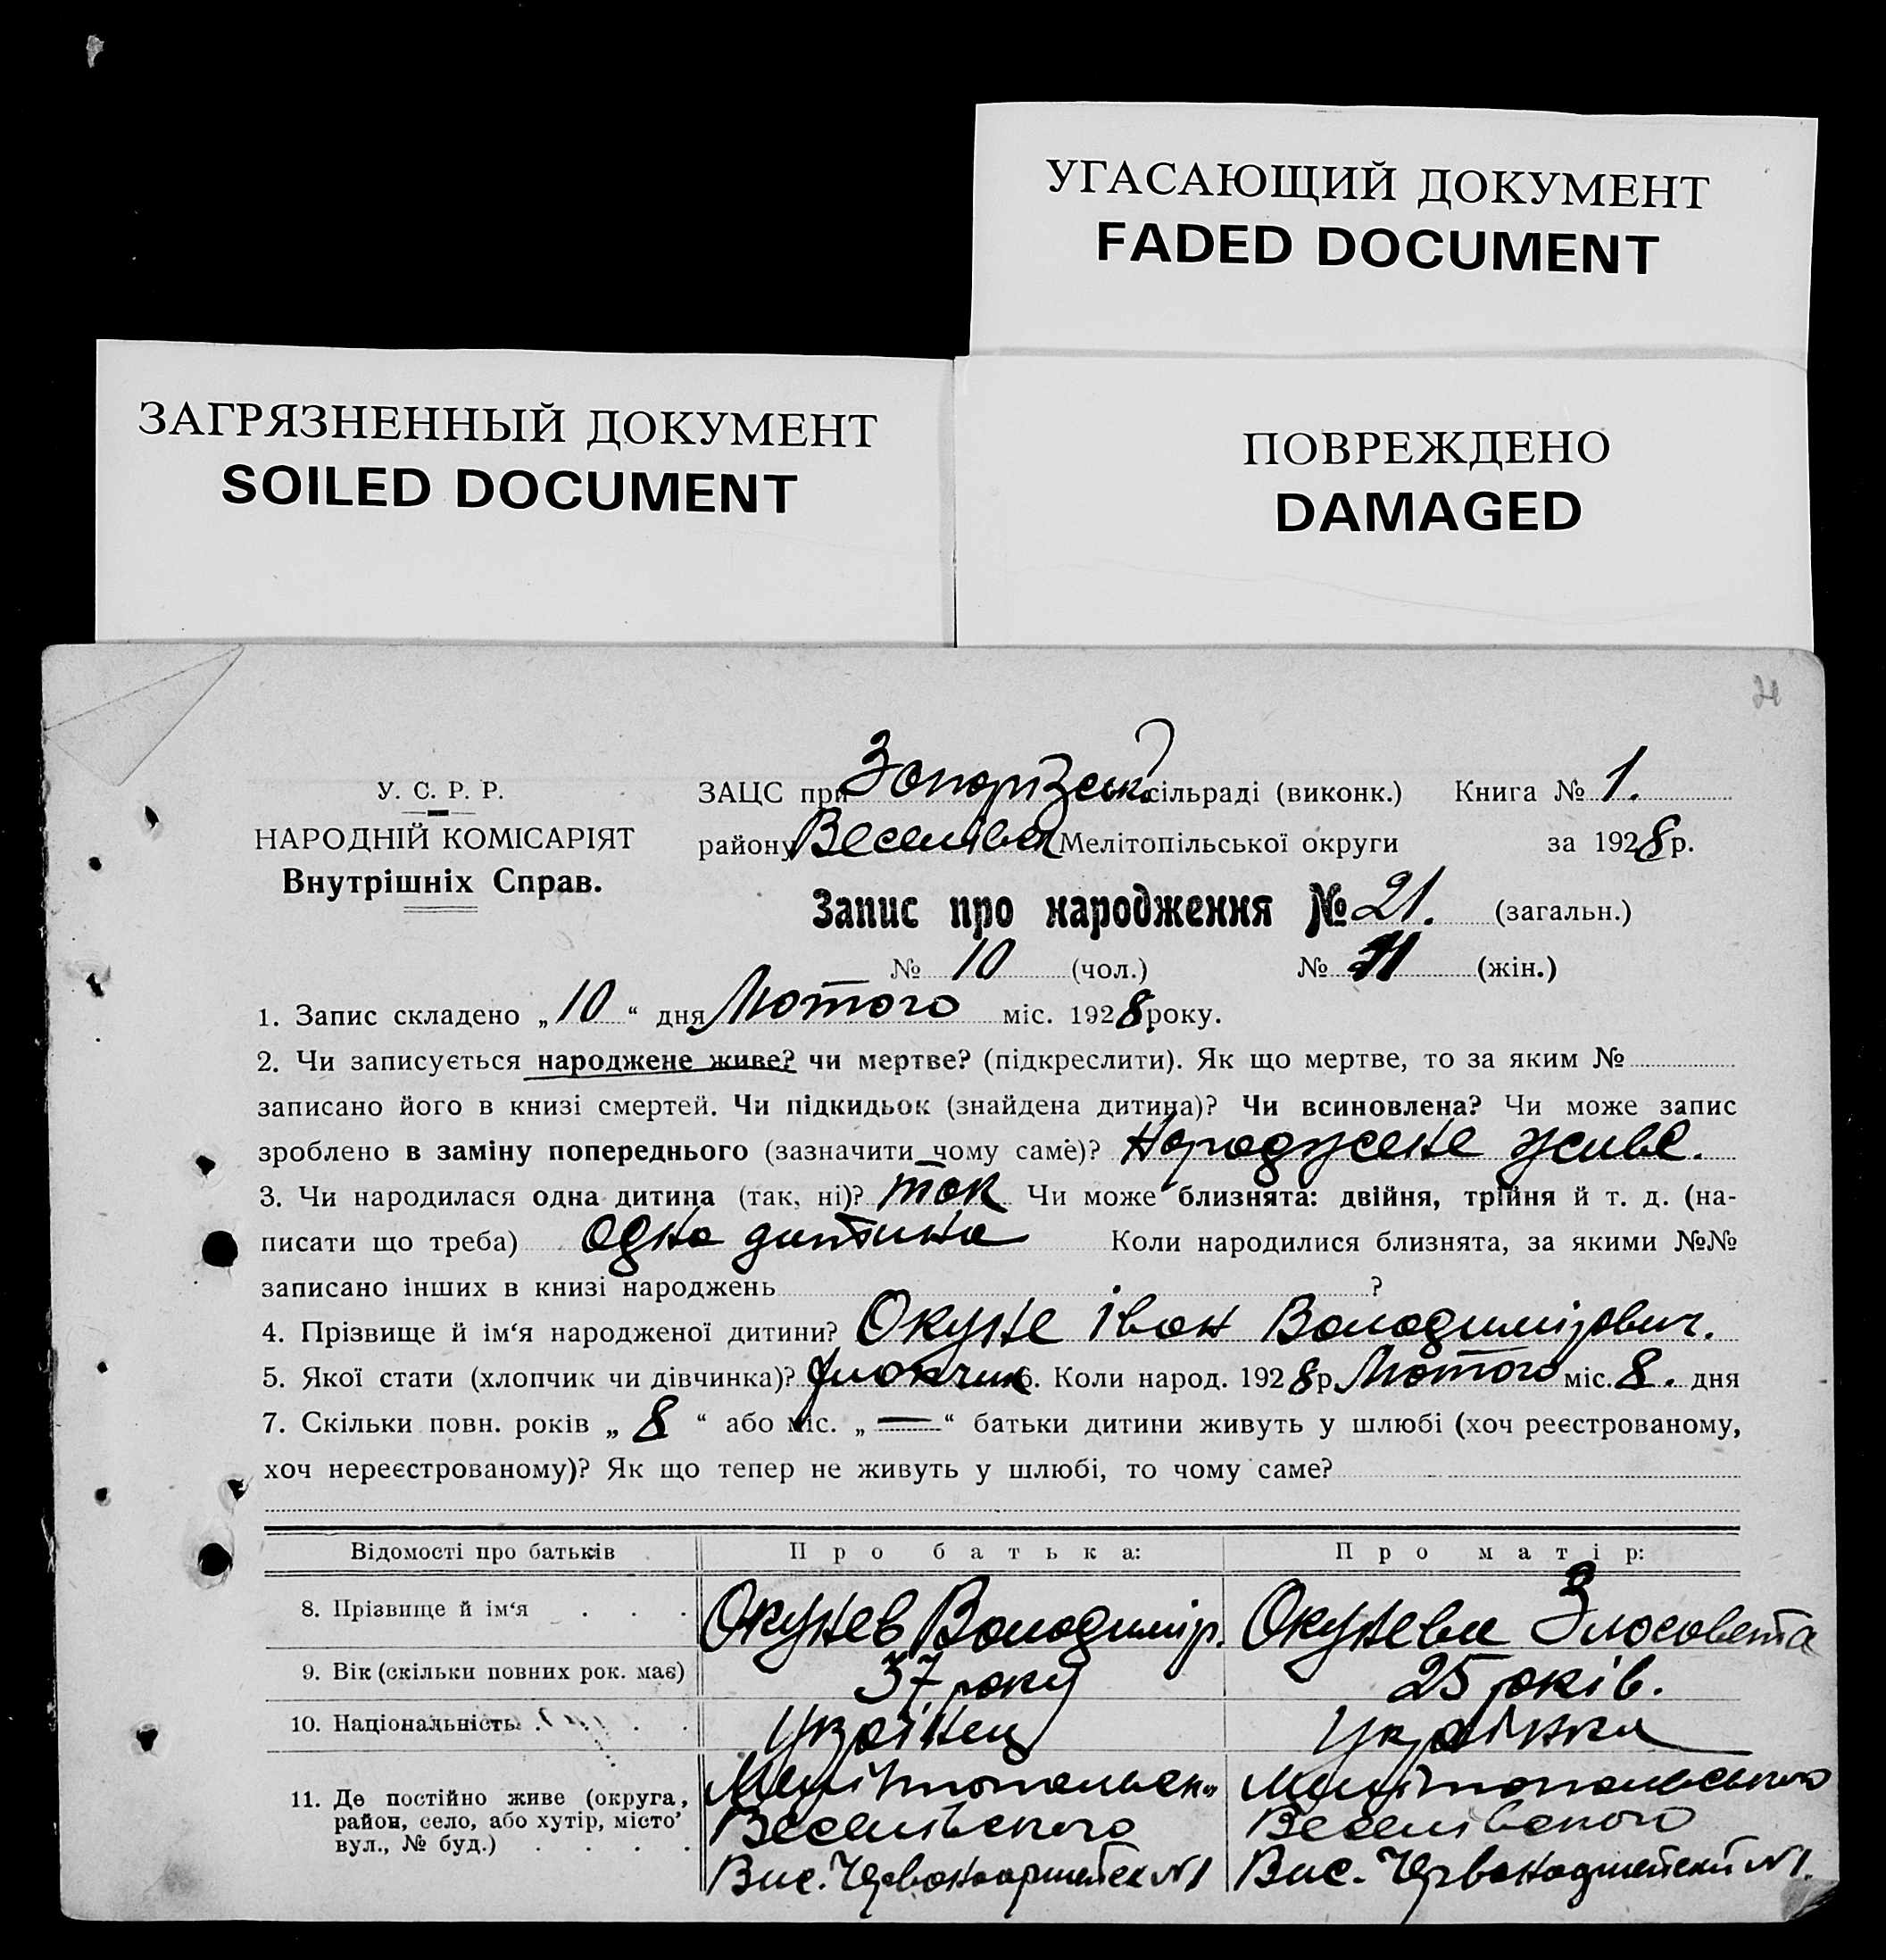 УГАСАЮЩИЙ ДОКУМЕНТ
FADED DOCUMENT
ЗАГРЯЗНЕННЫЙ ДОКУМЕНТ
SOILED DOCUMENT
ПОВРЕЖДЕНО
DAMAGED
У. С. Р. Р.
НАРОДНІЙ КОМІСАРІЯТ
Внутрішніх Справ.
ЗАЦС при Запорізськ. сільраді (виконк.) Книга № 1.
району Веселівск Мелітопільської округи за 1928 р.
Запис про народження № 21. (загальн.)
№ 10 (чол.) № 11 (жін.)
1. Запис складено „10“ дня Лютого міс. 1928 року.
2. Чи записується народжене живе? чи мертве? (підкреслити). Як що мертве, то за яким №
записано його в книзі смертей. Чи підкидьок (знайдена дитина)? Чи всиновлена? Чи може запис
зроблено в заміну попереднього (зазначити чому саме)? Народжене живе.
3. Чи народилася одна дитина (так, ні)? так Чи може близнята: двійня, трійня й т. д. (на-
писати що треба) Одна дитина Коли народилися близнята, за якими №№
записано інших в книзі народжень ?
4. Прізвище й ім‘я народженої дитини? Окуне Іван Володимірович.
5. Якої стати (хлопчик чи дівчинка)? хлопчик 6. Коли народ. 1928 р. Лютого міс. 8. дня
7. Скільки повн. років „8“ або міс. „—“ батьки дитини живуть у шлюбі (хоч реєстрованому,
хоч нереєстрованому)? Як що тепер не живуть у шлюбі, то чому саме?
Відомості про батьків Про батька: Про матір:
8. Прізвище й ім‘я . . . Окунев Володимір. Окунева Элосовета
9. Вік (скільки повних рок. має) 37 року 25 років.
10. Національність . . . Украінец Украінка
11. Де постійно живе (округа, Мелітопольск. Мелітопольського
район, село, або хутір, місто’ Веселівского Веселівского
вул., № буд.) . . . . Вис. Червоноармейск №1 Вис. Червоноармейский №1.